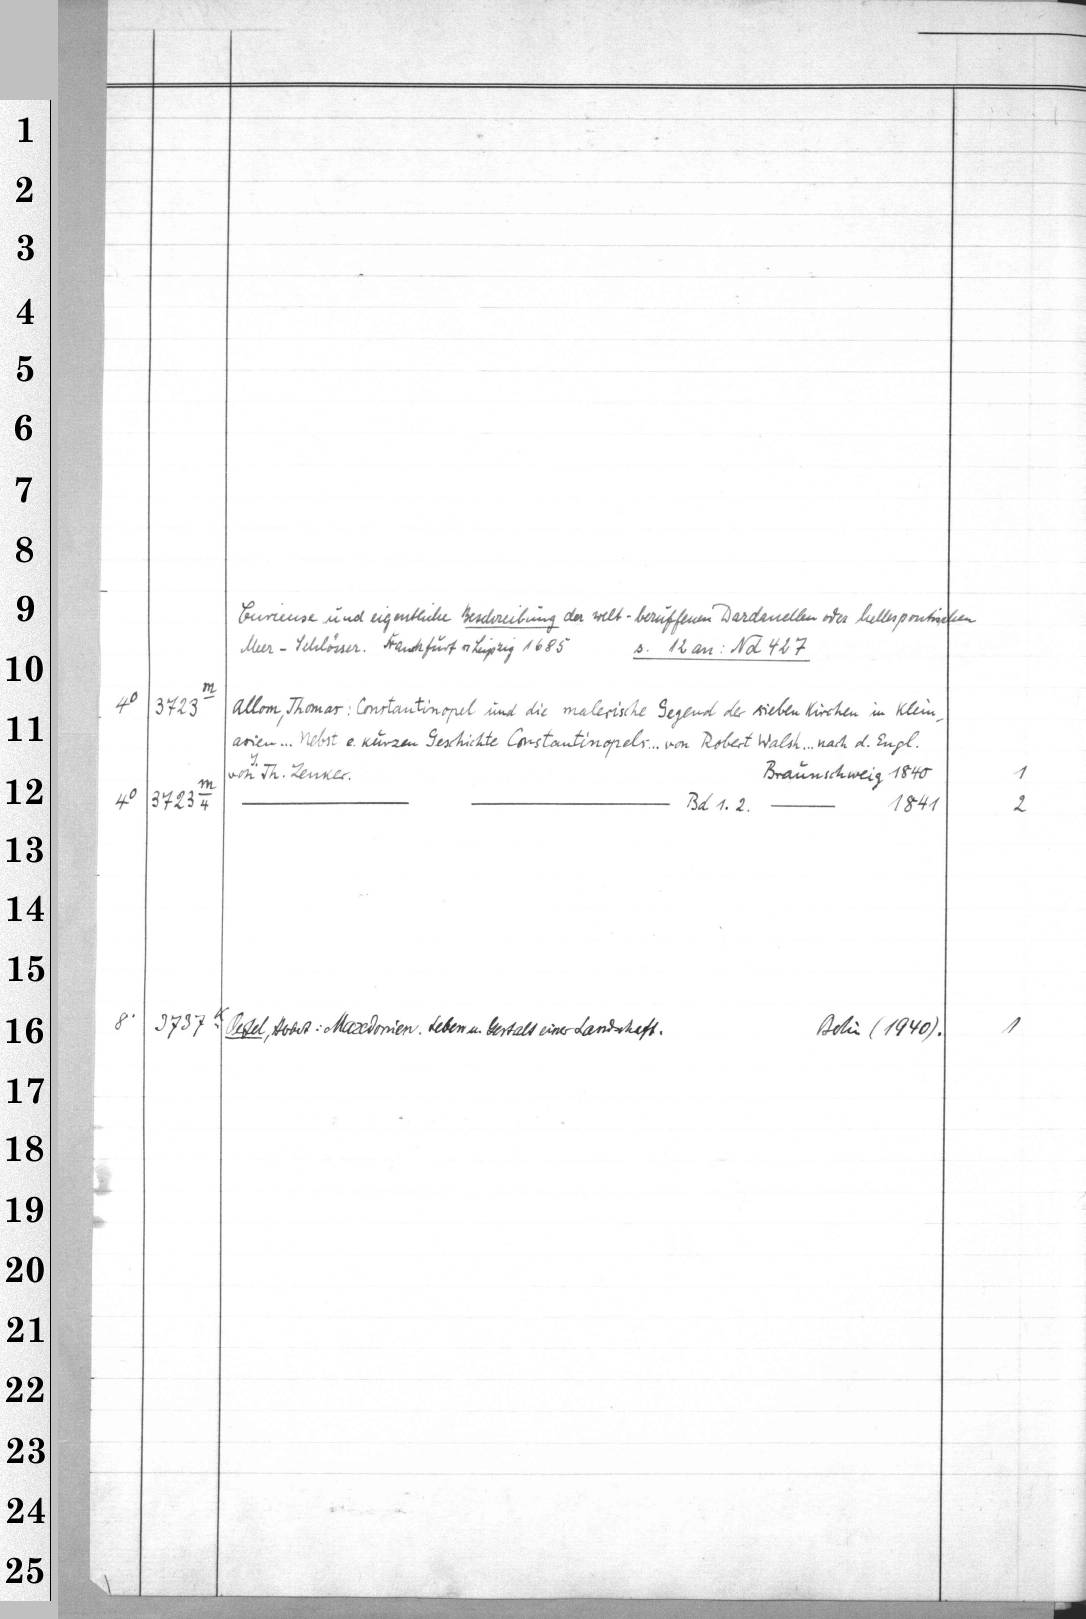 1
2
3
4
5
6
7
8
9
Curieuse und eigentliche Beschreibung der welt-beruffenen Dardanellen oder hellespontischen
Meer-Schlösser. Frankfurt u Leipzig 1685 s. 12 an: Nd 427
10
4° 3723 m Allom, Thomas: Constantinopel und die malerische Gegend der sieben Kirchen in Klein-
11
asien... Nebst e. kurzen Geschichte Constantinopels... von Robert Walsh... nach d. Engl.
von J. Th. Zenker. Braunschweig 1840 1
12
4° 3723 m/4 — — Bd 1. 2. — 1841 2
13
14
15
16
8° 3737 : Maxedonien. Leben u. Gestalt einer Landschaft. Berlin (1940). 1
17
18
19
20
21
22
23
24
25